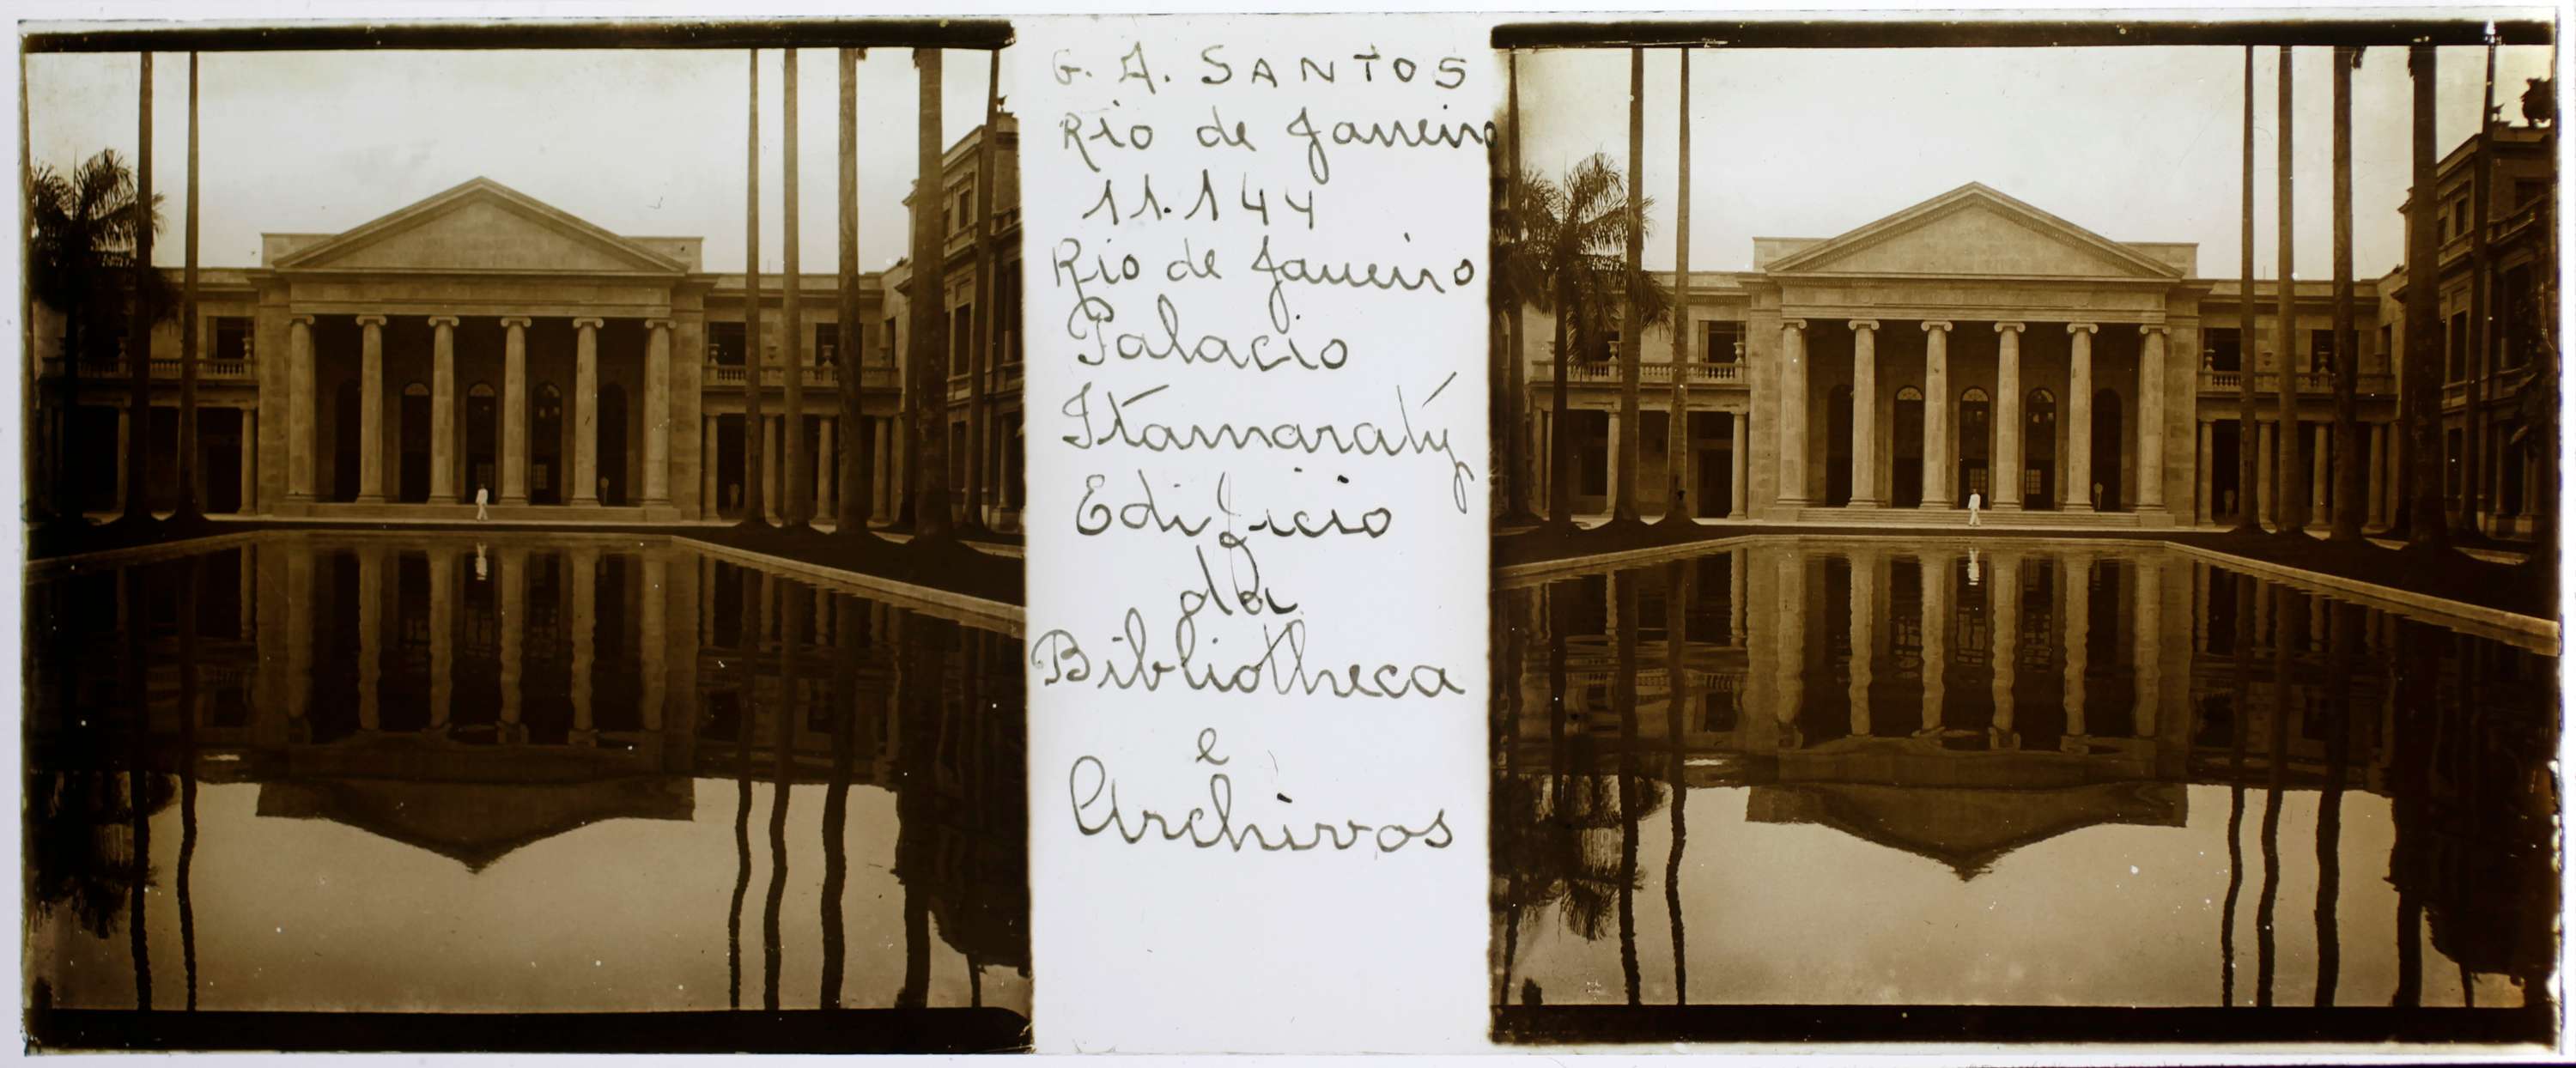 G. A. SANTOS
Rio de Janeiro
11.144
Rio de Janeiro
Palacio
Itamaratý
Edificio
da
Bibliotheca
e
Archivos